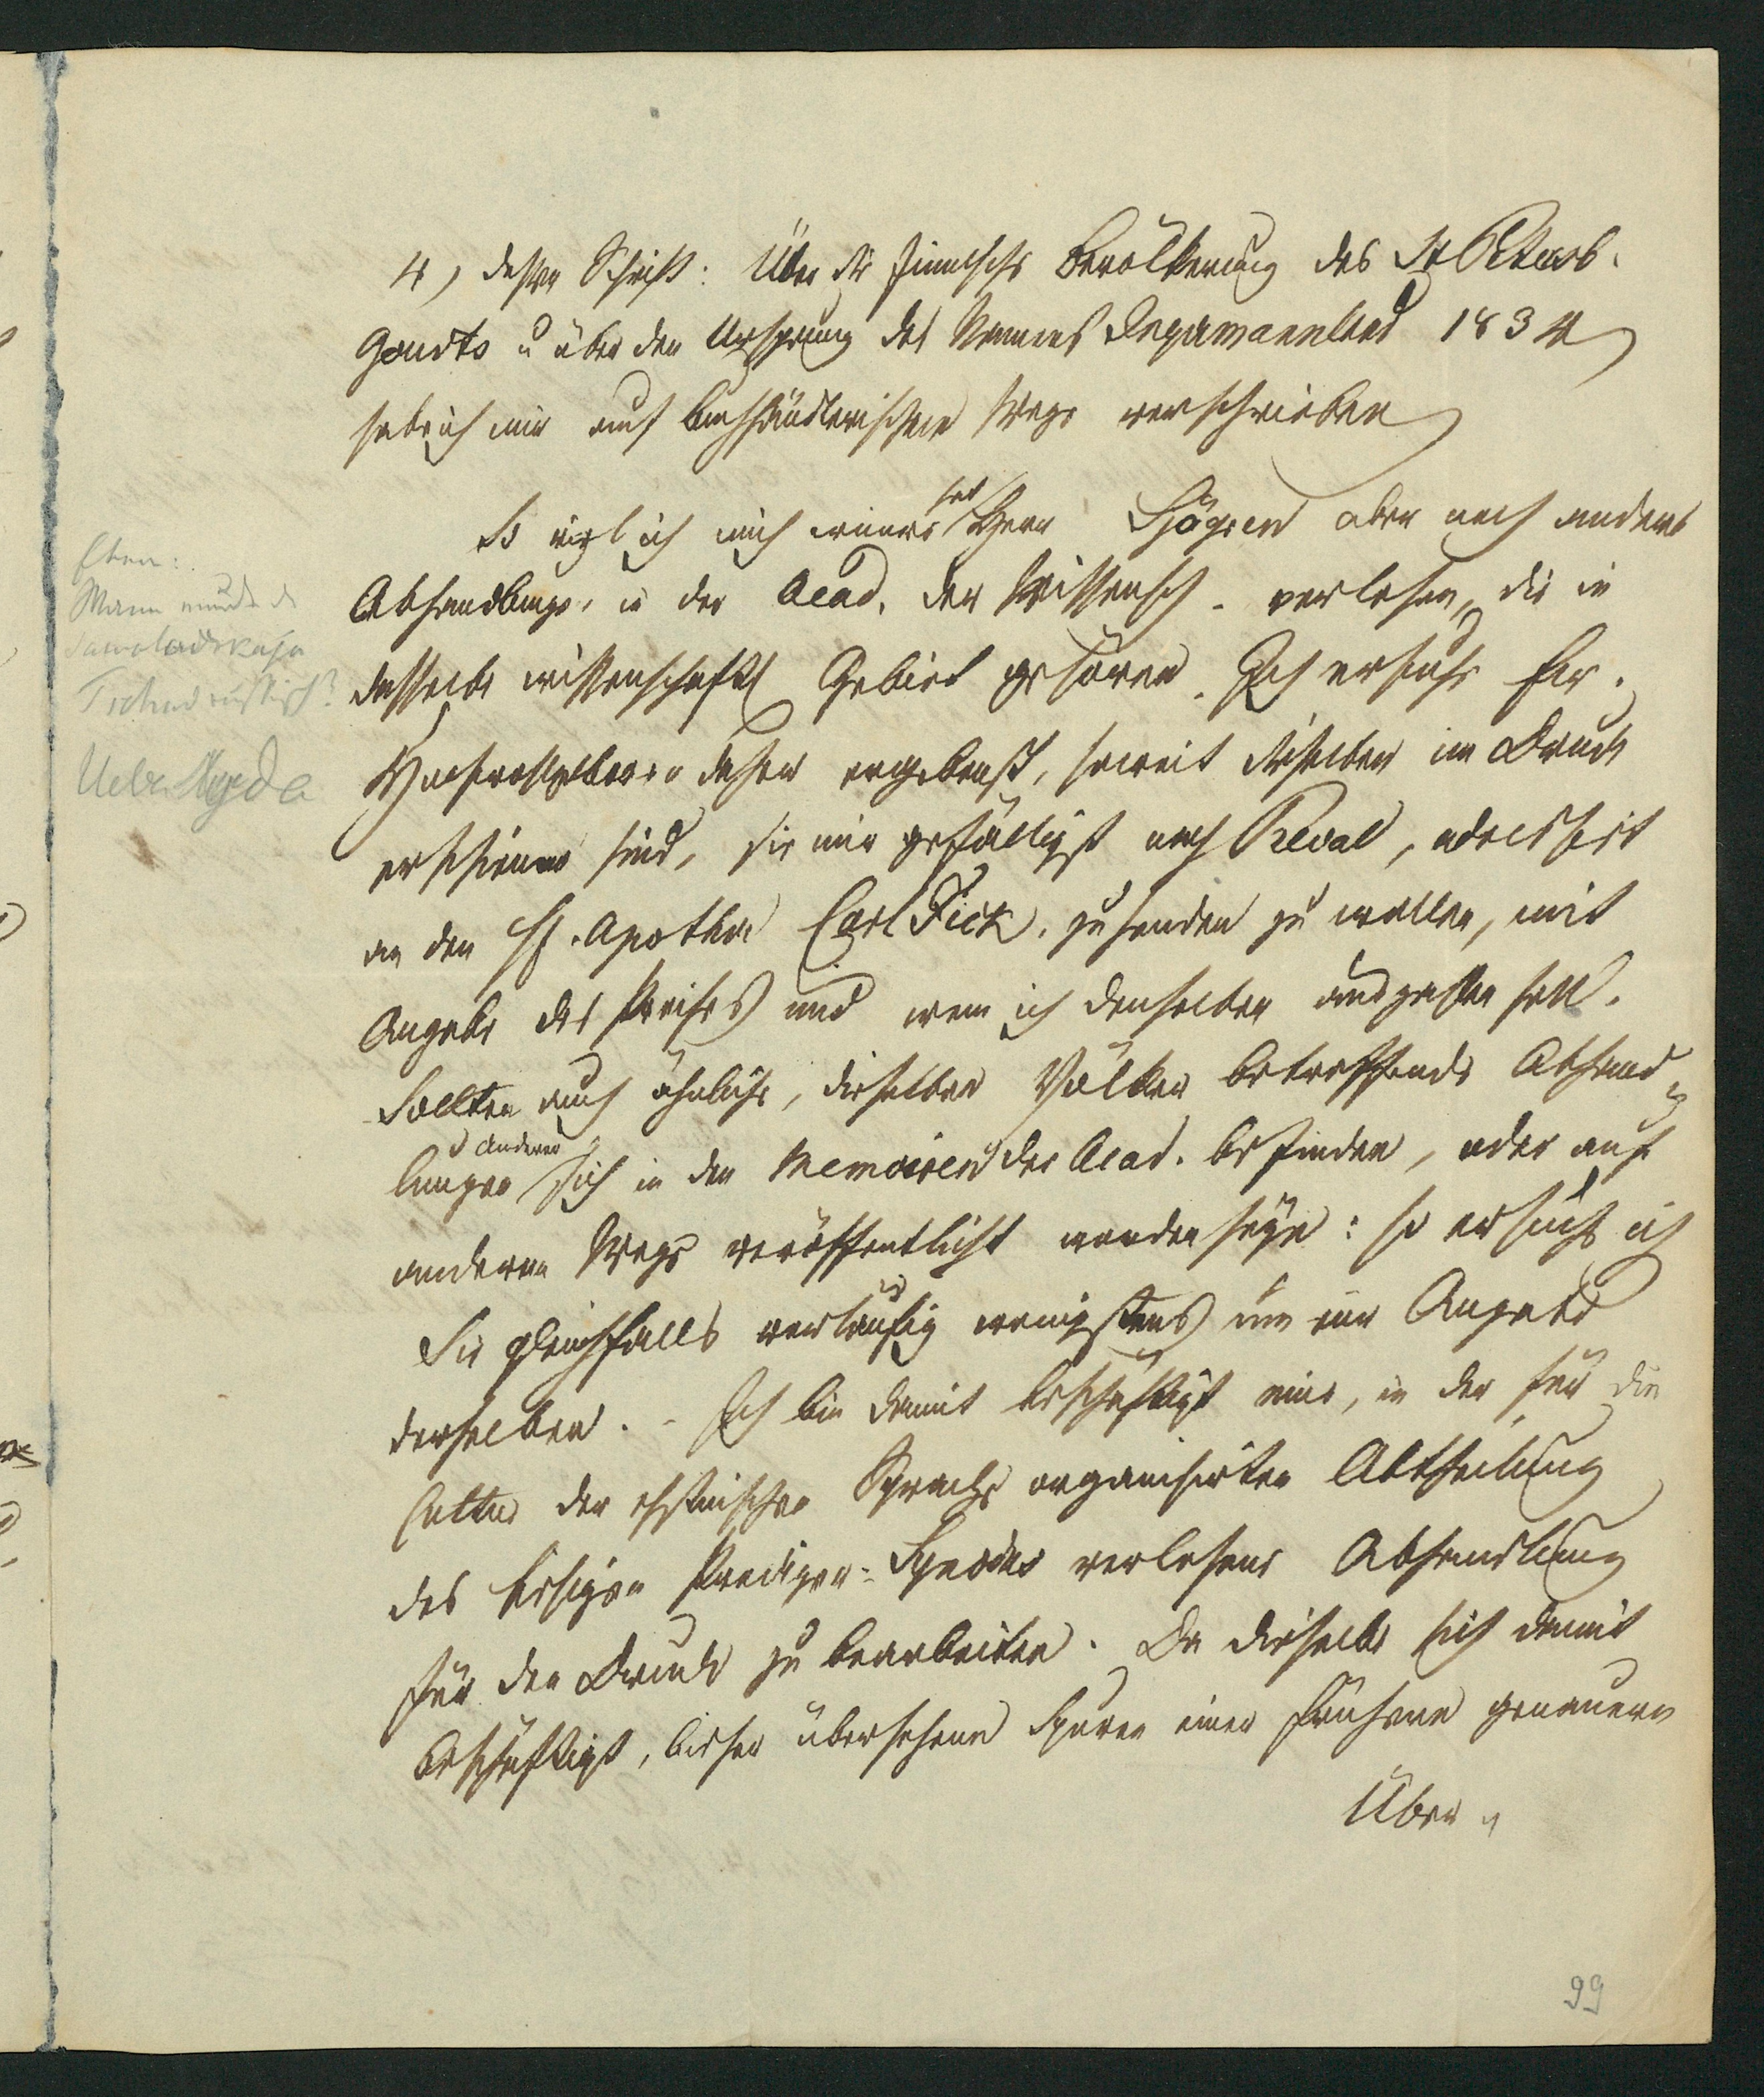 4, dessen Schrift: Über die finnische Bevölkerung des St Petersb.
Gouvts u über den Ursprung des Namens Ingermannland 1834
habe ich mir auf buchhändlerischem Wege verschrieben
So viel ich mich erinnere hat Herr Sjögren aber noch andere
Abhandlunge, in der Acad. der Wissensch. verlesen, die in
dasselbe wissenschaftl Gebiet gehören. Ich ersuche Ew.
Hochwohlgeboren daher ergebenst, soweit dieselben im Druck
erschienen sind, sie mir gefälligst nach Reval, adressirt
an den H. Apothe Carl Fick, zusenden zu wollen, mit
Angabe des Preises und wem ich denselben auszahlen soll.
Sollten auch ähnliche, dieselben Völker betreffende Abhand-
lungen Anderer sich in den Memoiren der Acad. befinden, oder auf
anderm Wege veröffentlicht worden seyn: so ersuche ich
Sie gleichfalls vorläufig wenigstens um eine Angabe
derselben. - Ich bin damit beschäftigt eine, in der für die
Cultur der ehstnischen Sprache organisirten Abtheilung
der hiesigen Prediger-Synode verlesene Abhandlung
für den Druck zu bearbeiten. Da dieselbe sich damit
beschäftigt, bisher übersehene Spuren einer frühern genauern
Über
Mann
Sawolodskaja
Ueber
99